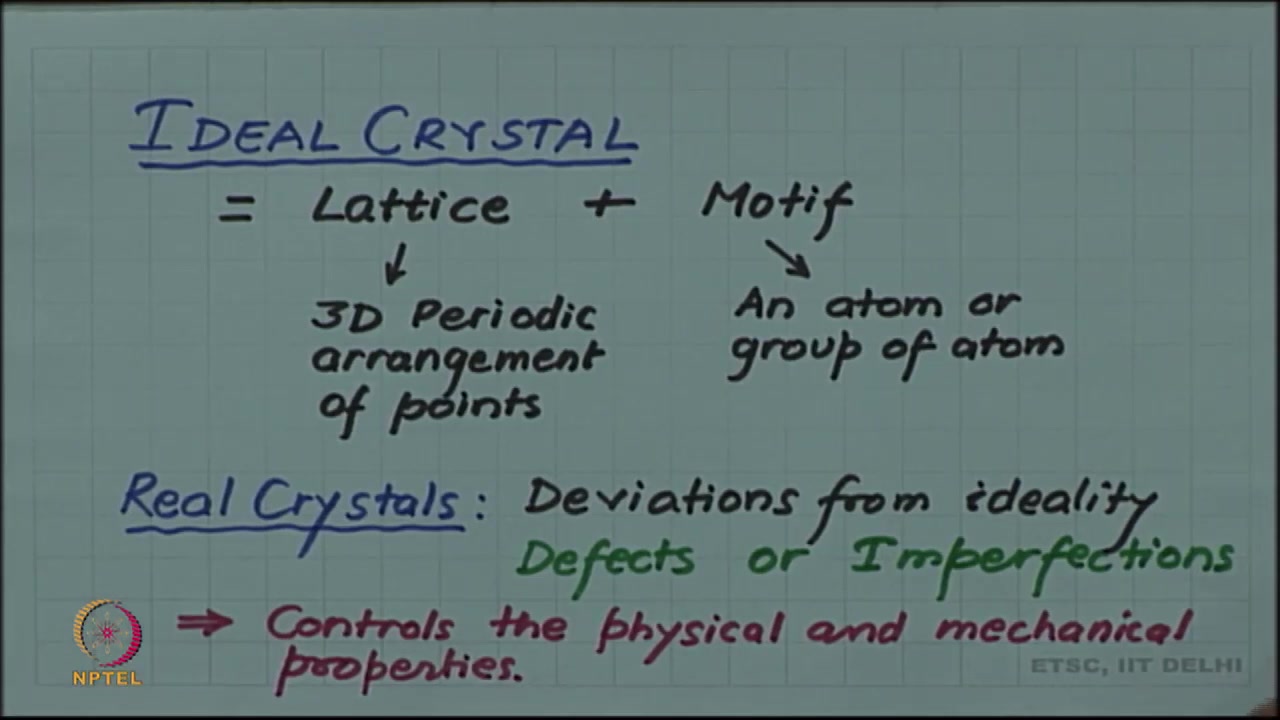 IDEAL CRYSTAL
= Lattice + Motif
↓ ↘
3D Periodic An atom or
arrangement group of atom
of points
Real Crystals : Deviations from ideality
Defects or Imperfections
⇒ Controls the physical and mechanical
properties.
NPTEL
ETSC, IIT DELHI